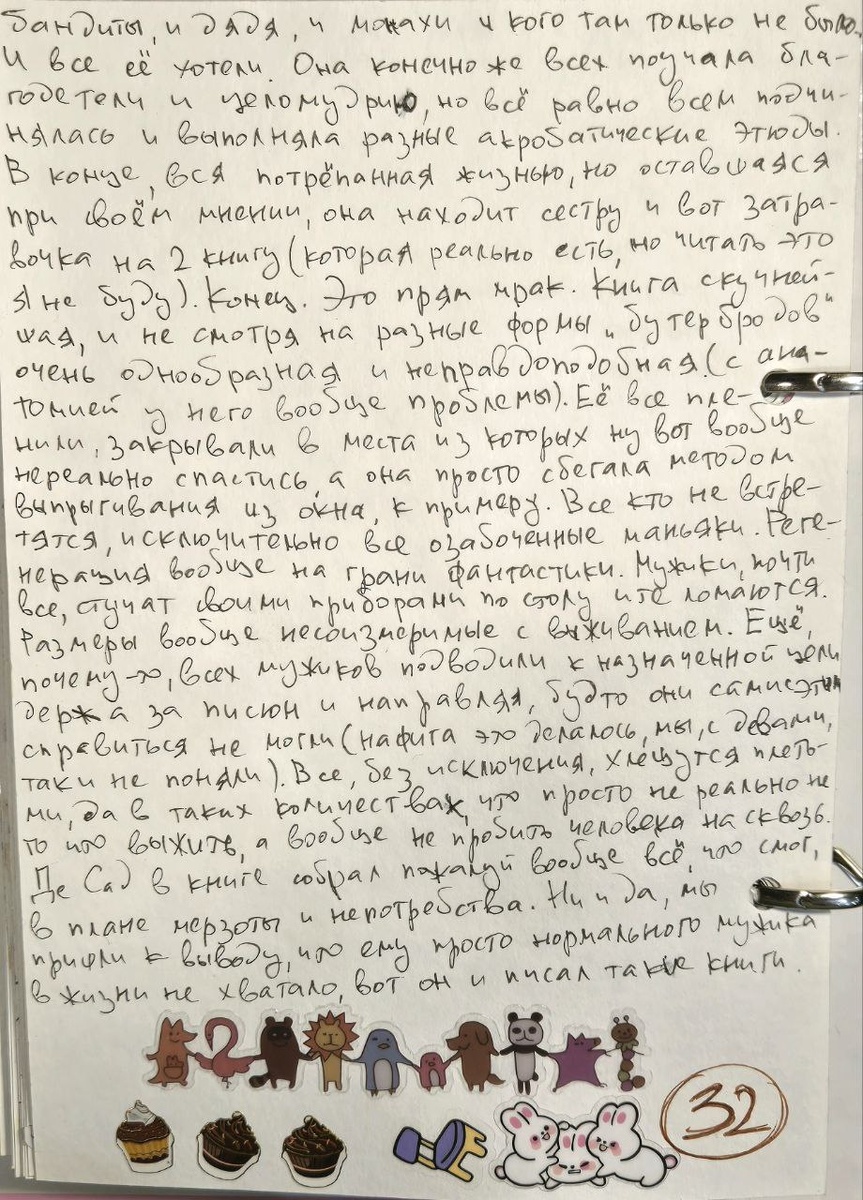 бандиты, и дядя, и монахи и кого там только не было.
И все её хотели. Она конечно же всех поучала бла-
годетели и целомудрию, но всё равно всем подчи-
нялась и выполняла разные акробатические этюды.
В конце, вся потрёпанная жизнью, но оставшаяся
при своём мнении, она находит сестру и вот затра-
вочка на 2 книгу (которая реально есть, но читать это
я не буду). Конец. Это прям мрак. Книга скучней-
шая, и не смотря на разные формы „бутербродов"
очень однообразная и неправдоподобная (с ана-
томией у него вообще проблемы). Её все пле-
нили, закрывали в места из которых ну вот вообще
нереально спастись, а она просто сбегала методом
выпрыгивания из окна, к примеру. Все кто не встре-
тятся, исключительно все озабоченные маньяки. Реге-
нерация вообще на грани фантастики. Мужики, почти
все, стучат своими приборами по столу и те ломаются.
Размеры вообще несоизмеримые с выживанием. Ещё,
почему-то, всех мужиков подводили к назначенной цели
держа за писюн и направляя, будто они сами с этим
справиться не могли (нафига это делалось, мы, с девами,
таки не поняли). Все, без исключения, хлещутся плеть-
ми, да в таких количествах, что просто не реально не
то что выжить, а вообще не пробить человека на сквозь.
Де Сад в книге собрал пожалуй вообще всё, что смог,
в плане мерзоты и непотребства. Ни и да, мы
пришли к выводу, что ему просто нормального мужика
в жизни не хватало, вот он и писал такие книги.
32